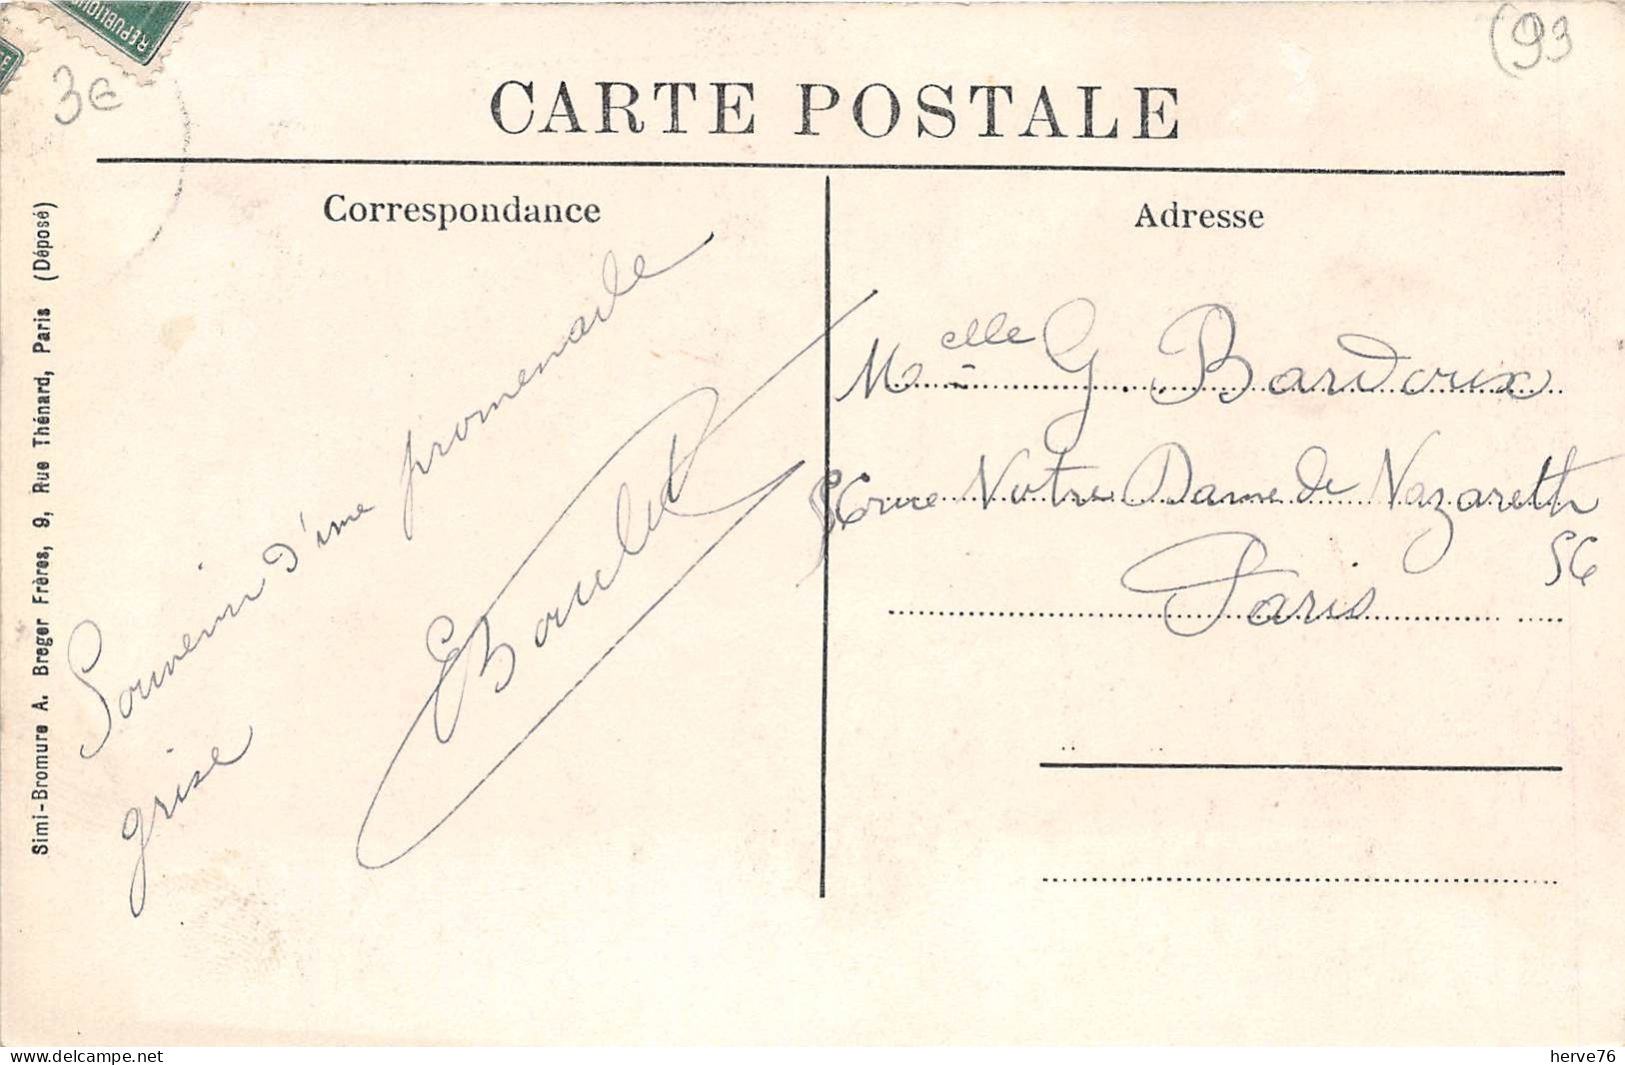 REPUBLIQUE
3€
(93
CARTE POSTALE
Correspondance
Adresse
Souvenir d'une promenade
grise
EBoulet
Melle G. Bardoux
56 rue Notre Dame de Nazareth
56
Paris
Simi-Bromure A. Breger Frères, 9, Rue Thénard, Paris (Déposé)
www.delcampe.net
herve76